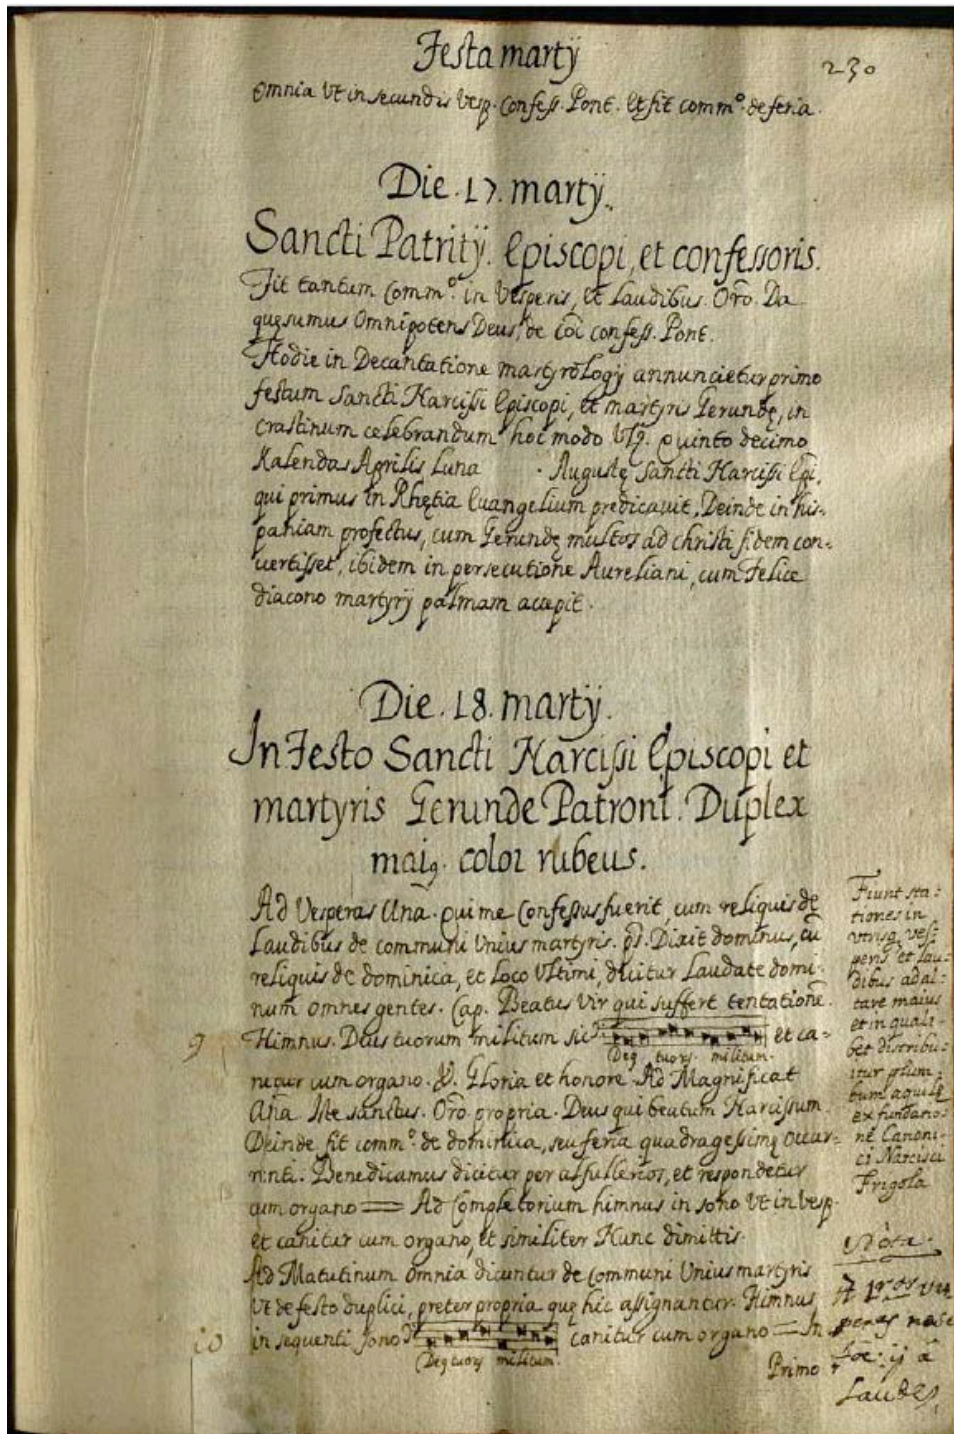 Festa martÿ
230
Omnia Vt in secundis Vesp. Confess. Pont. Et fit comm.º de feria.
Die .17. martÿ.
Sancti Patritÿ. Episcopi, et confessoris.
Fit tantum Comm.º in Vesperis, et Laudibus. Orõ. Da
quęsumus Omnipotens Deus, de cõi confess. Pont.
Hodie in Decantatione martyrologÿ annuncietur primo
festum Sancti Narcissi Episcopi, et martyris Gerundę, in
crastinum celebrandum hoc modo Vsq. Quinto decimo
Kalendas Aprilis Luna . Augustę Sancti Narcissi Epĩ,
qui primus in Rhętia Euangelium predicauit, Deinde in his-
paniam profectus, cum Gerundę multos ad christi fidem con-
uertisset, ibidem in persecutione Aureliani, cum Felice
diacono martyrÿ palmam accepit.
Die .18. martÿ.
In Festo Sancti Narcissi Episcopi et
martyris Gerunde Patroni. Duplex
maiꝰ. color rubeus.
Ad Vesperas Aña. Qui me Confessus fuerit, cum reliquis de
Laudibus de communi Vnius martyris. ps. Dixit dominus, cũ
reliquis de dominica, et Loco Vltimi, dicitur Laudate domi-
num omnes gentes. Cap. Beatus Vir qui suffert tentationẽ.
9
Himnus. Deus tuorum militum sic et ca-
Deꝰ tuorꝝ militum.
nitur cum organo. ℣. Gloria et honore. Ad Magnificat
Aña Iste sanctus. Orõ propria. Deus qui beatum Narcissum.
Deinde fit comm.º de dominica, seu feria quadragessimę occur-
renti. Benedicamus dicitur per alsullercos, et respondetur
cum organo == Ad Completorium himnus in sono Vt in Vesp.
et canitur cum organo, et similiter Nunc dimittis.
Ad Matutinum omnia dicuntur de Communi Vnius martyris
Vt de festo duplici, preter propria quę hic assignantur. Himnus
10
in sequenti sono canitur cum organo = In
Deꝰ tuorꝝ militum.
Primo
Fiunt sta-
tiones in
vtrisq. ves-
peris et lau-
dibus ad al-
tare maius
et in quali-
bet distribu-
itur plum-
bum aquilę
ex fundatio-
ne Canoni-
ci Narcisci
Frigola
Nota.
laudes